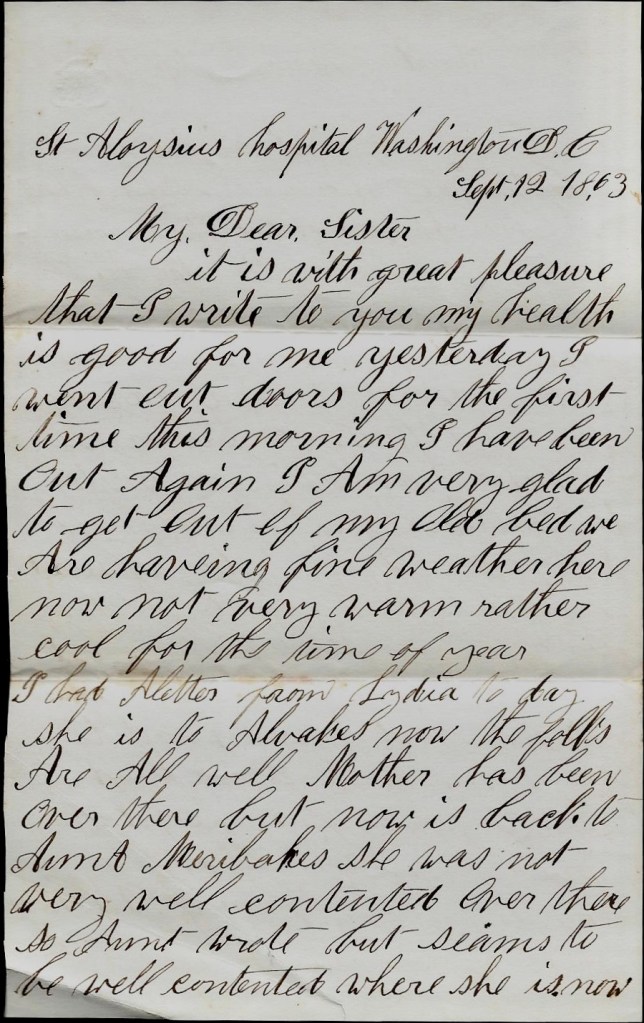 St Aloysius hospital Washington D. C
Sept, 12 1863
My, Dear, Sister
it is with great pleasure
that I write to you my health
is good for me yesterday I
went out doors for the first
time this morning I have been
Out Again I Am very glad
to get Out of my Old bed we
Are haveing fine weather here
now not very warm rather
cool for the time of year
I had A letter from Lydia to day
she is to Alvahes now the folks
Are All well Mother has been
Over there but now is back to
Aunt Meribahes she was not
very well contented Over there
so Aunt wrote but seams to
be well contented where she is now